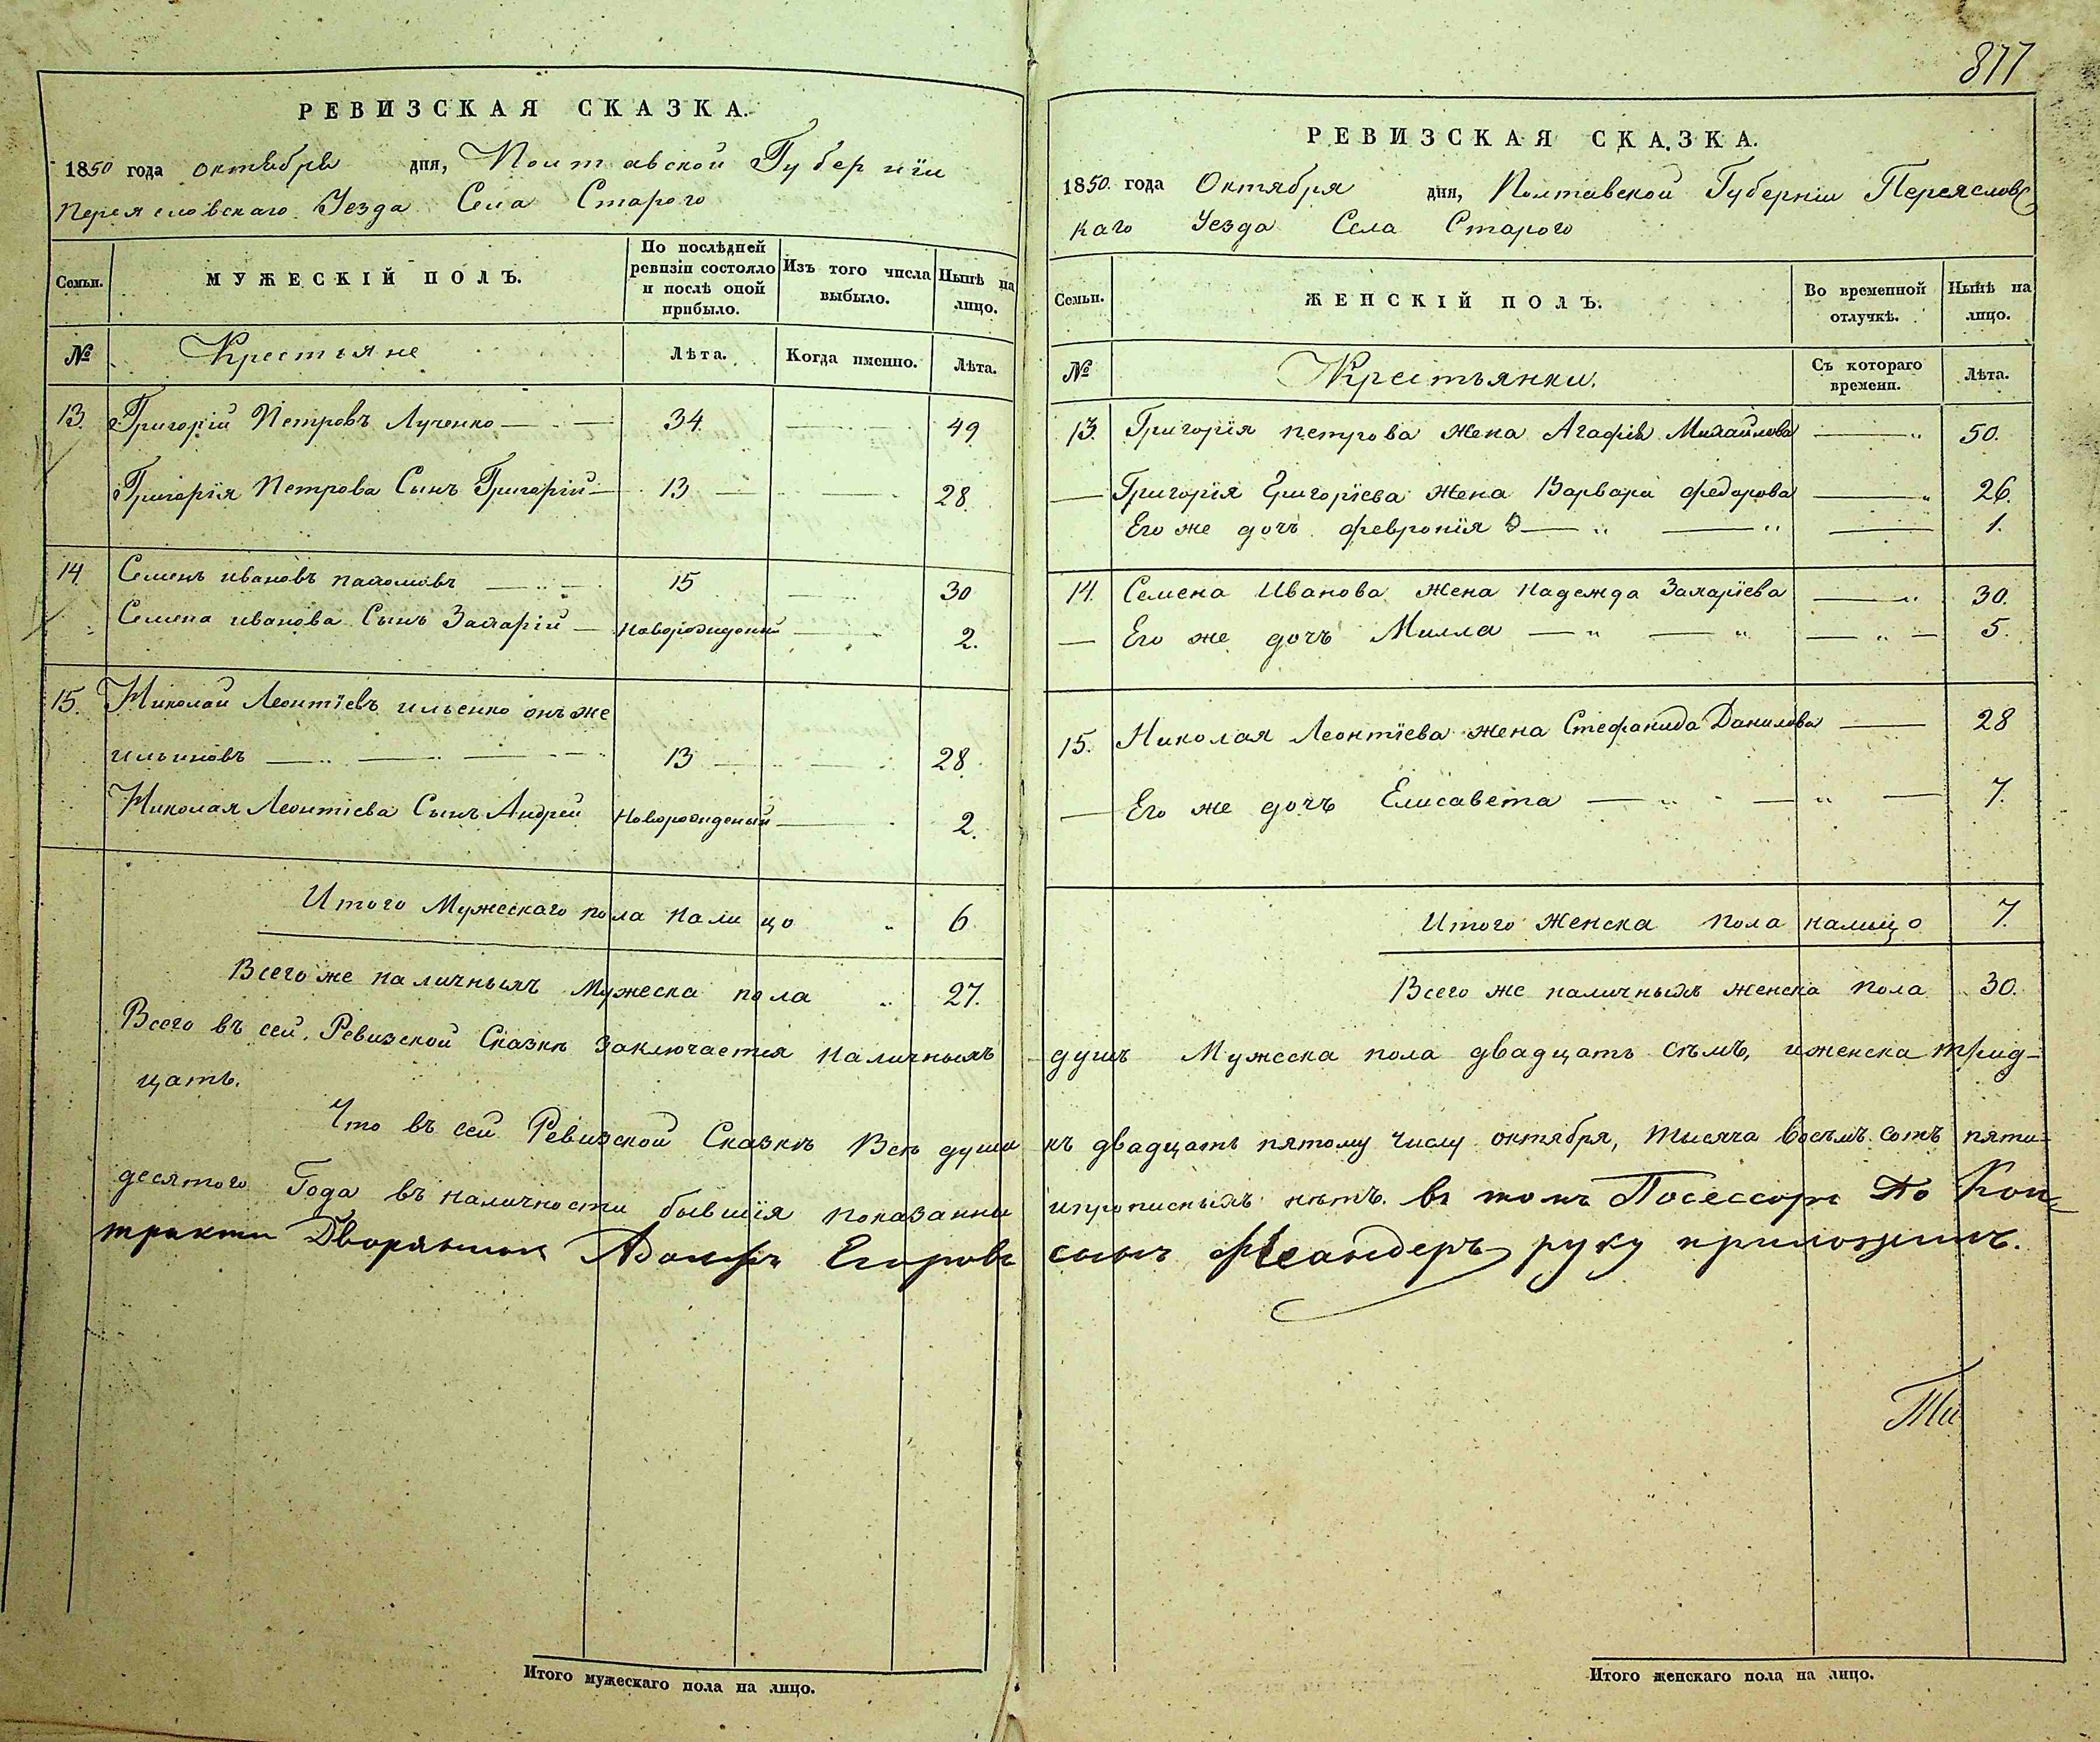 877
РЕВИЗСКАЯ СКАЗКА.
1850 года октября дня, Полтавской Губерніи
Переясловскаго Уезда Села Старого
Семьи.
МУЖЕСКІЙ ПОЛЪ.
По послѣдней ревизіи состояло и послѣ оной прибыло.
Изъ того числа выбыло.
Нынѣ на лицо.
№ Крестьяне Лѣта. Когда именно. Лѣта.
13. Григорій Петровъ Лученко 34. 49
Григорія Петрова Сынъ Григорій 13 28.
14 Семенъ ивановъ 15 30
Семена иванова Сынъ Захарій новорожденый 2.
15. Николай Леонтіевъ ильенко онъ же
ильиновъ 13 28.
Николая Леонтіева Сынъ Андрей новорожденый 2.
Итого Мужескаго пола налицо 6
Всего же наличныхъ Мужеска пола 27.
Всего въ сей Ревизской Сказкѣ заключается наличныхъ
цать.
Что въ сей Ревизской Сказкѣ Всѣ души
десятого Года въ наличности бывшія показанны
тракти Дворянинъ Адольфъ Егоровъ
Итого мужескаго пола на лицо.
РЕВИЗСКАЯ СКАЗКА.
1850. года Октября дня, Полтавской Губерніи Переяслов̾с
каго Уезда Села Старого
Семьи.
ЖЕНСКІЙ ПОЛЪ.
Во временной отлучкѣ.
Нынѣ на лицо.
№ Крестьянки. Съ котораго времени. Лѣта.
13. Григорія петрова жена Агафія Михайлова 50.
Григорія Григоріева жена Варвара федорова 26.
Его же дочъ февронія 1.
14. Семена Иванова жена надежда Захаріева 30.
Его же дочъ Милла 5.
15. Николая Леонтіева жена Стефанида Данилова 28
Его же дочъ Елисавета 7.
Итого женска пола налицо 7.
Всего же наличныхъ женска пола 30.
душъ Мужеска пола двадцать сѣмъ, иженска трид-
къ двадцать пятому числу октября, тисяча восѣмъ сотъ пяти-
ипрописныхъ нѣтъ. въ томъ Посессоръ По Кон-
сынъ руку приложилъ.
Ти
Итого женскаго пола на лицо.